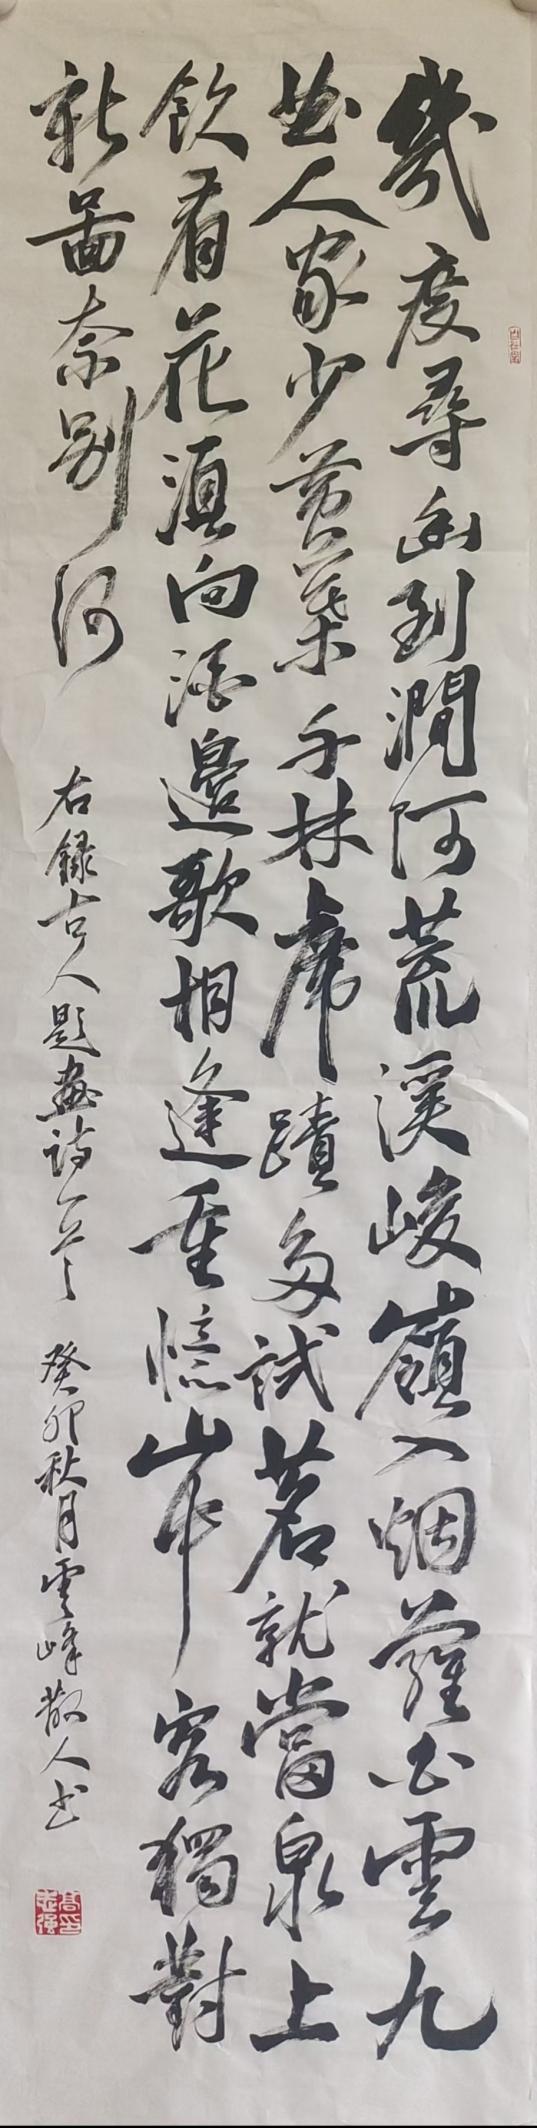 幾度尋幽到澗阿荒溪峻嶺入烟蘿白雲九
曲人家少黄葉千林虎蹟多試茗就當泉上
飲看花湏向酒邊歌相逢重憶山中客獨對
新圖奈别何
右録古人題畫詩一首
癸卯秋月雲峰散人书